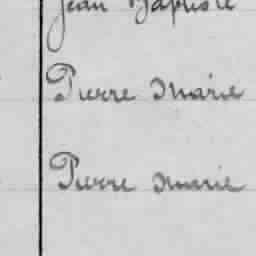 Jean Baptiste
Pierre Marie
Pierre Marie